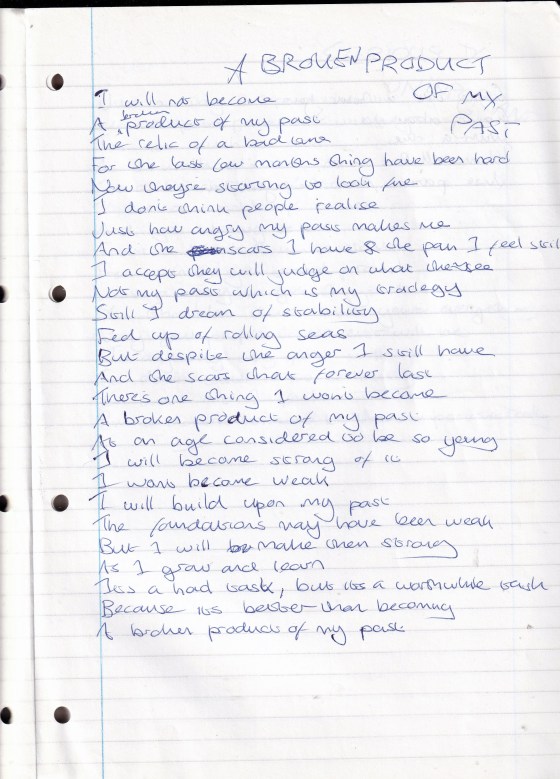 A BROKEN PRODUCT
OF MY
PAST
I will not become
A broken product of my past
The relic of a bad time
For the last few months thing have been hard
Now they're starting to look fine
I don't think people realise
Just how angry my past makes me
And the scars I have & the pain I feel still
I accept they will judge on what they see
Not my past which is my tradegy
Still I dream of stability
Fed up of rolling seas
But despite the anger I still have
And the scars that forever last
There's one thing I won't become
A broken product of my past
At an age considered to be so young
I will become strong of it
I wont become weak
I will build upon my past
The foundations may have been weak
But I will make them strong
As I grow and learn
Its a had task, but its a worthwhile task
Because its better than becoming
A broken product of my past